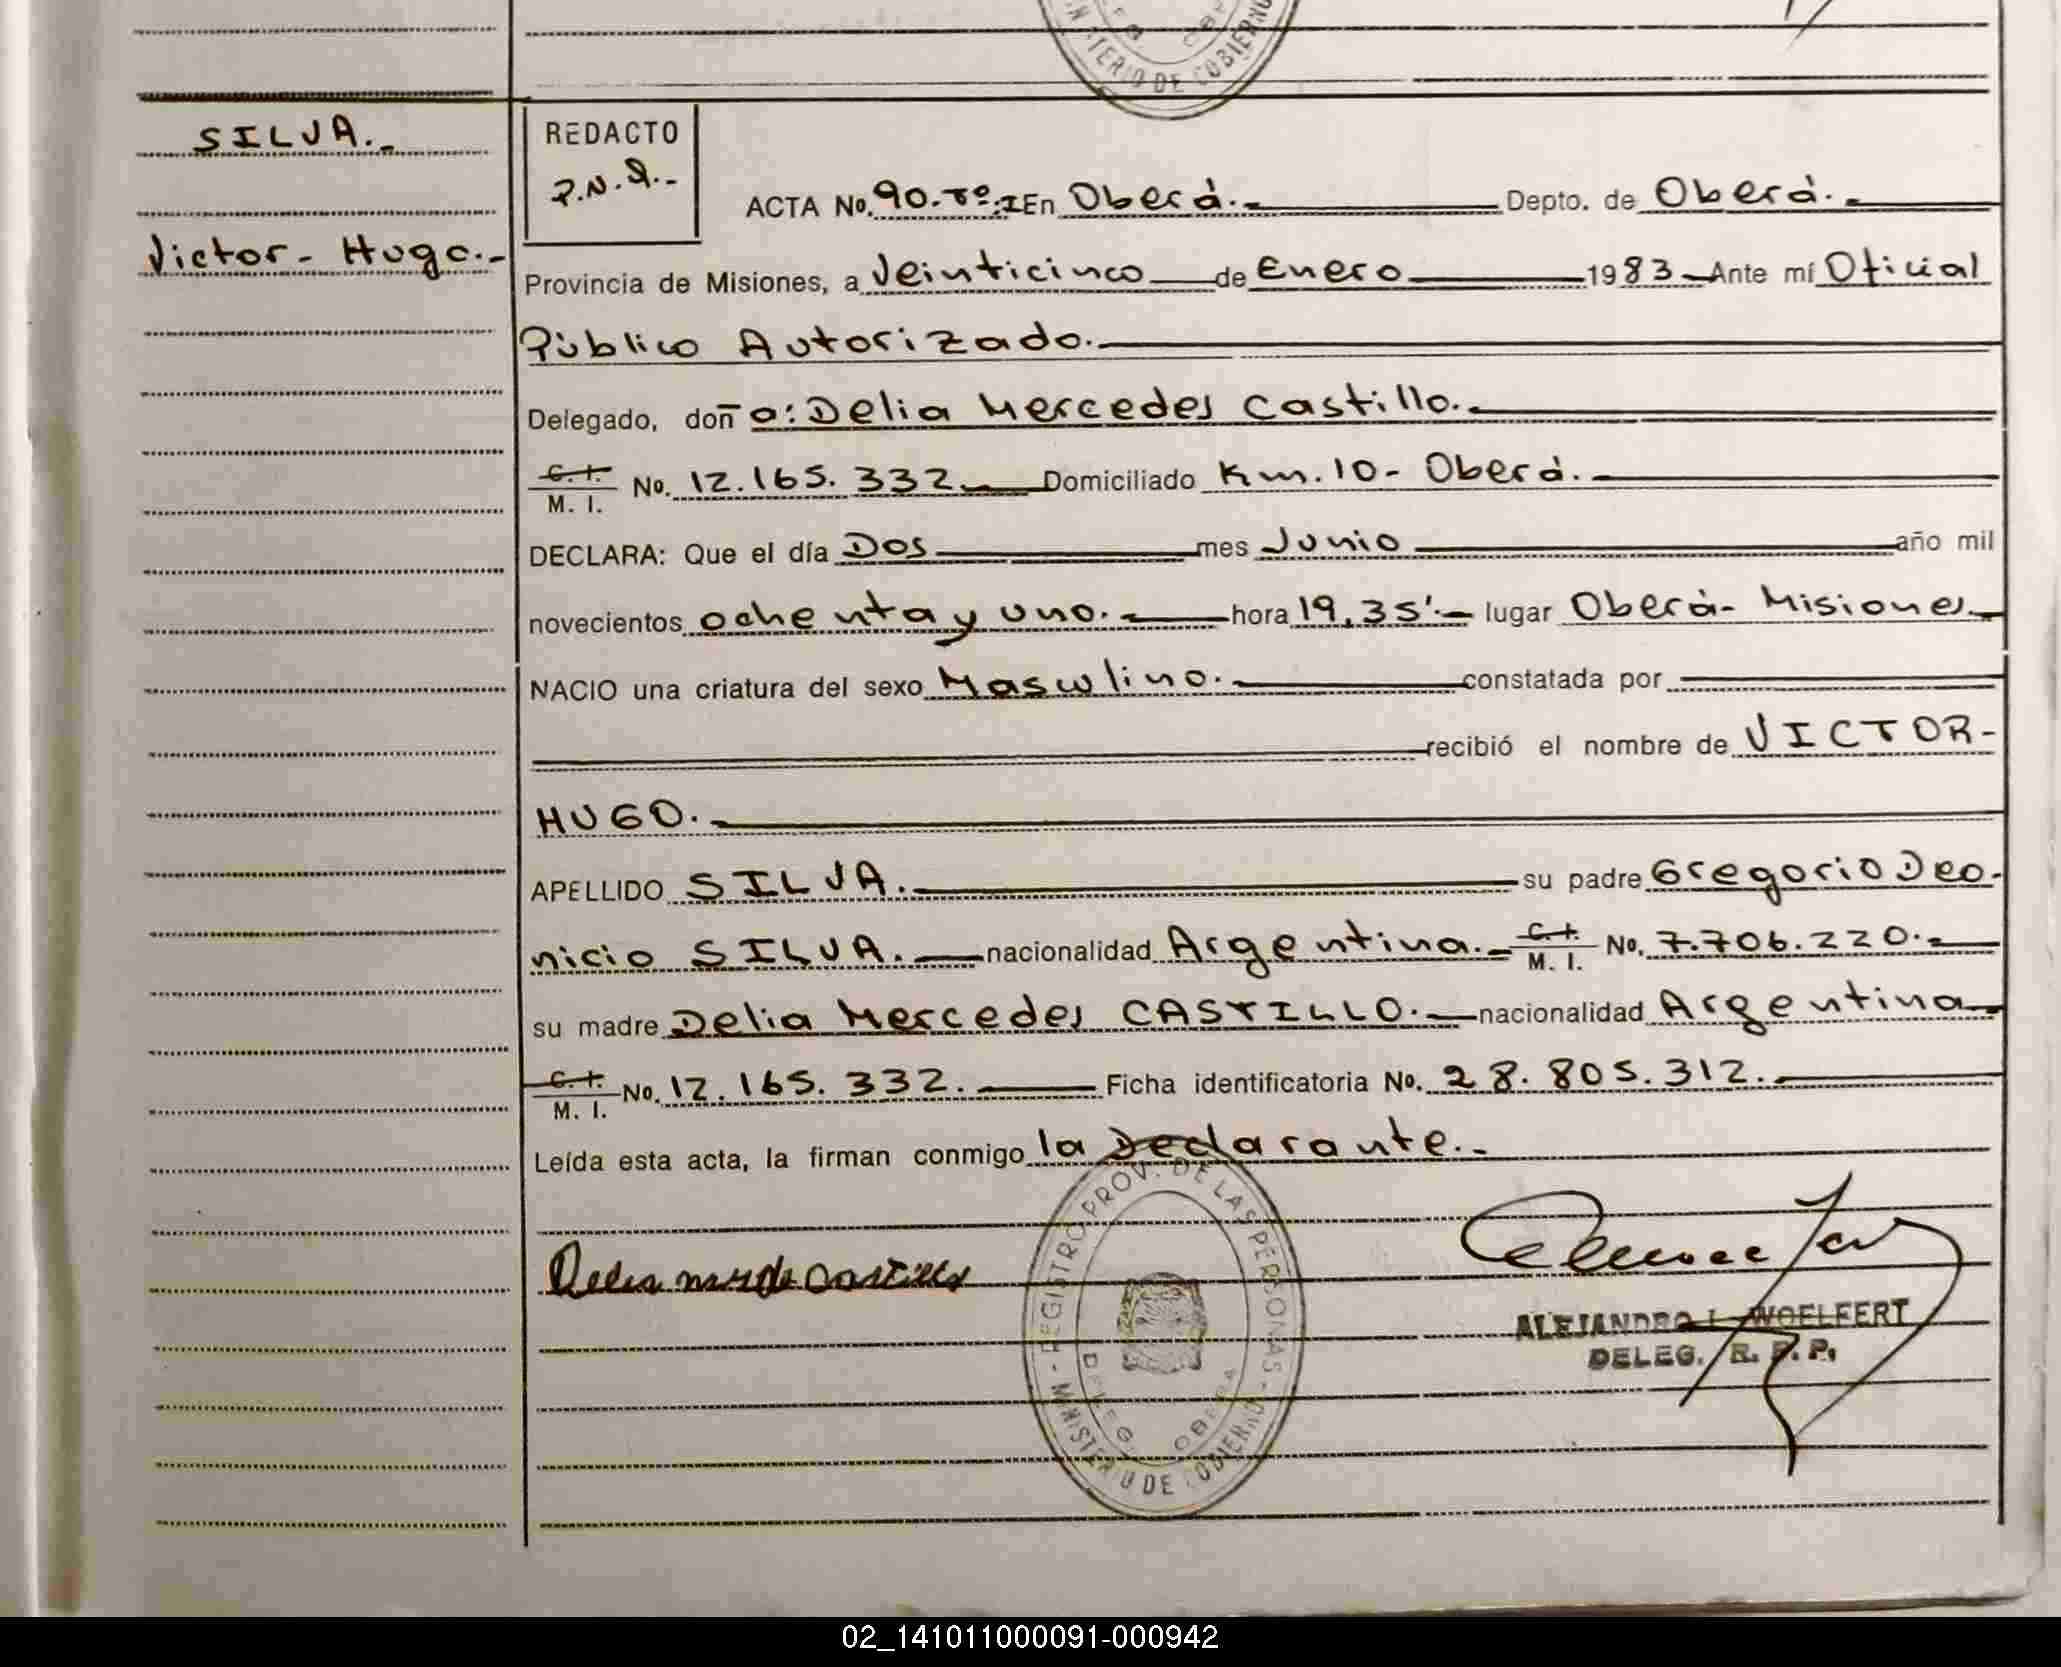 MINISTERIO DE GOBIERNO
SILVA.-
Victor- Hugo.-
REDACTO
P.N.S.-
ACTA No. 90.-Tº:I En Oberá.- Depto. de Oberá.-
Provincia de Misiones, a Veinticinco de Enero 1983 Ante mí Oficial
Público Autorizado.-
Delegado, doñ a: Delia Mercedes Castillo.-
C. I.
M. I. No. 12.165.332 Domiciliado Km. 10- Oberá.-
DECLARA: Que el día Dos mes Junio año mil
novecientos ochenta y uno.- hora 19,35'.- lugar Oberá- Misiones.-
NACIO una criatura del sexo Masculino.- constatada por
recibió el nombre de VICTOR-
HUGO.-
APELLIDO SILVA.- su padre Gregorio Deo-
nicio SILVA.- nacionalidad Argentina.- C. I. M. I. No. 7.706.220.-
su madre Delia Mercedes CASTILLO.- nacionalidad Argentina
C. I.
M. I. No. 12.165.332.- Ficha identificatoria No. 28.805.312.-
Leída esta acta, la firman conmigo la Declarante.-
REGISTRO PROV. DE LAS PERSONAS - MINISTERIO DE GOBIERNO -
DELEG. OBERA
ALEJANDRO L. WOELFERT
DELEG. R. P. P.
02_141011000091-000942